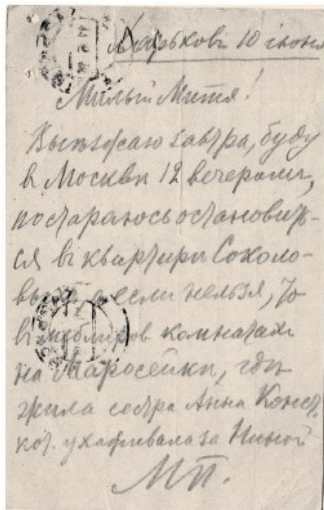 Харьковъ 10 іюня
Милый Митя!
Выѣзжаю завтра, буду
въ Москвѣ 12 вечеромъ,
постараюсь остановить-
ся въ квартирѣ Соколо-
а если нельзя, то
въ меблиров комнатахъ
на Маросейкѣ, гдѣ
жила сестра Анна Конст.
кот. ухаживала за Ниной
МП.